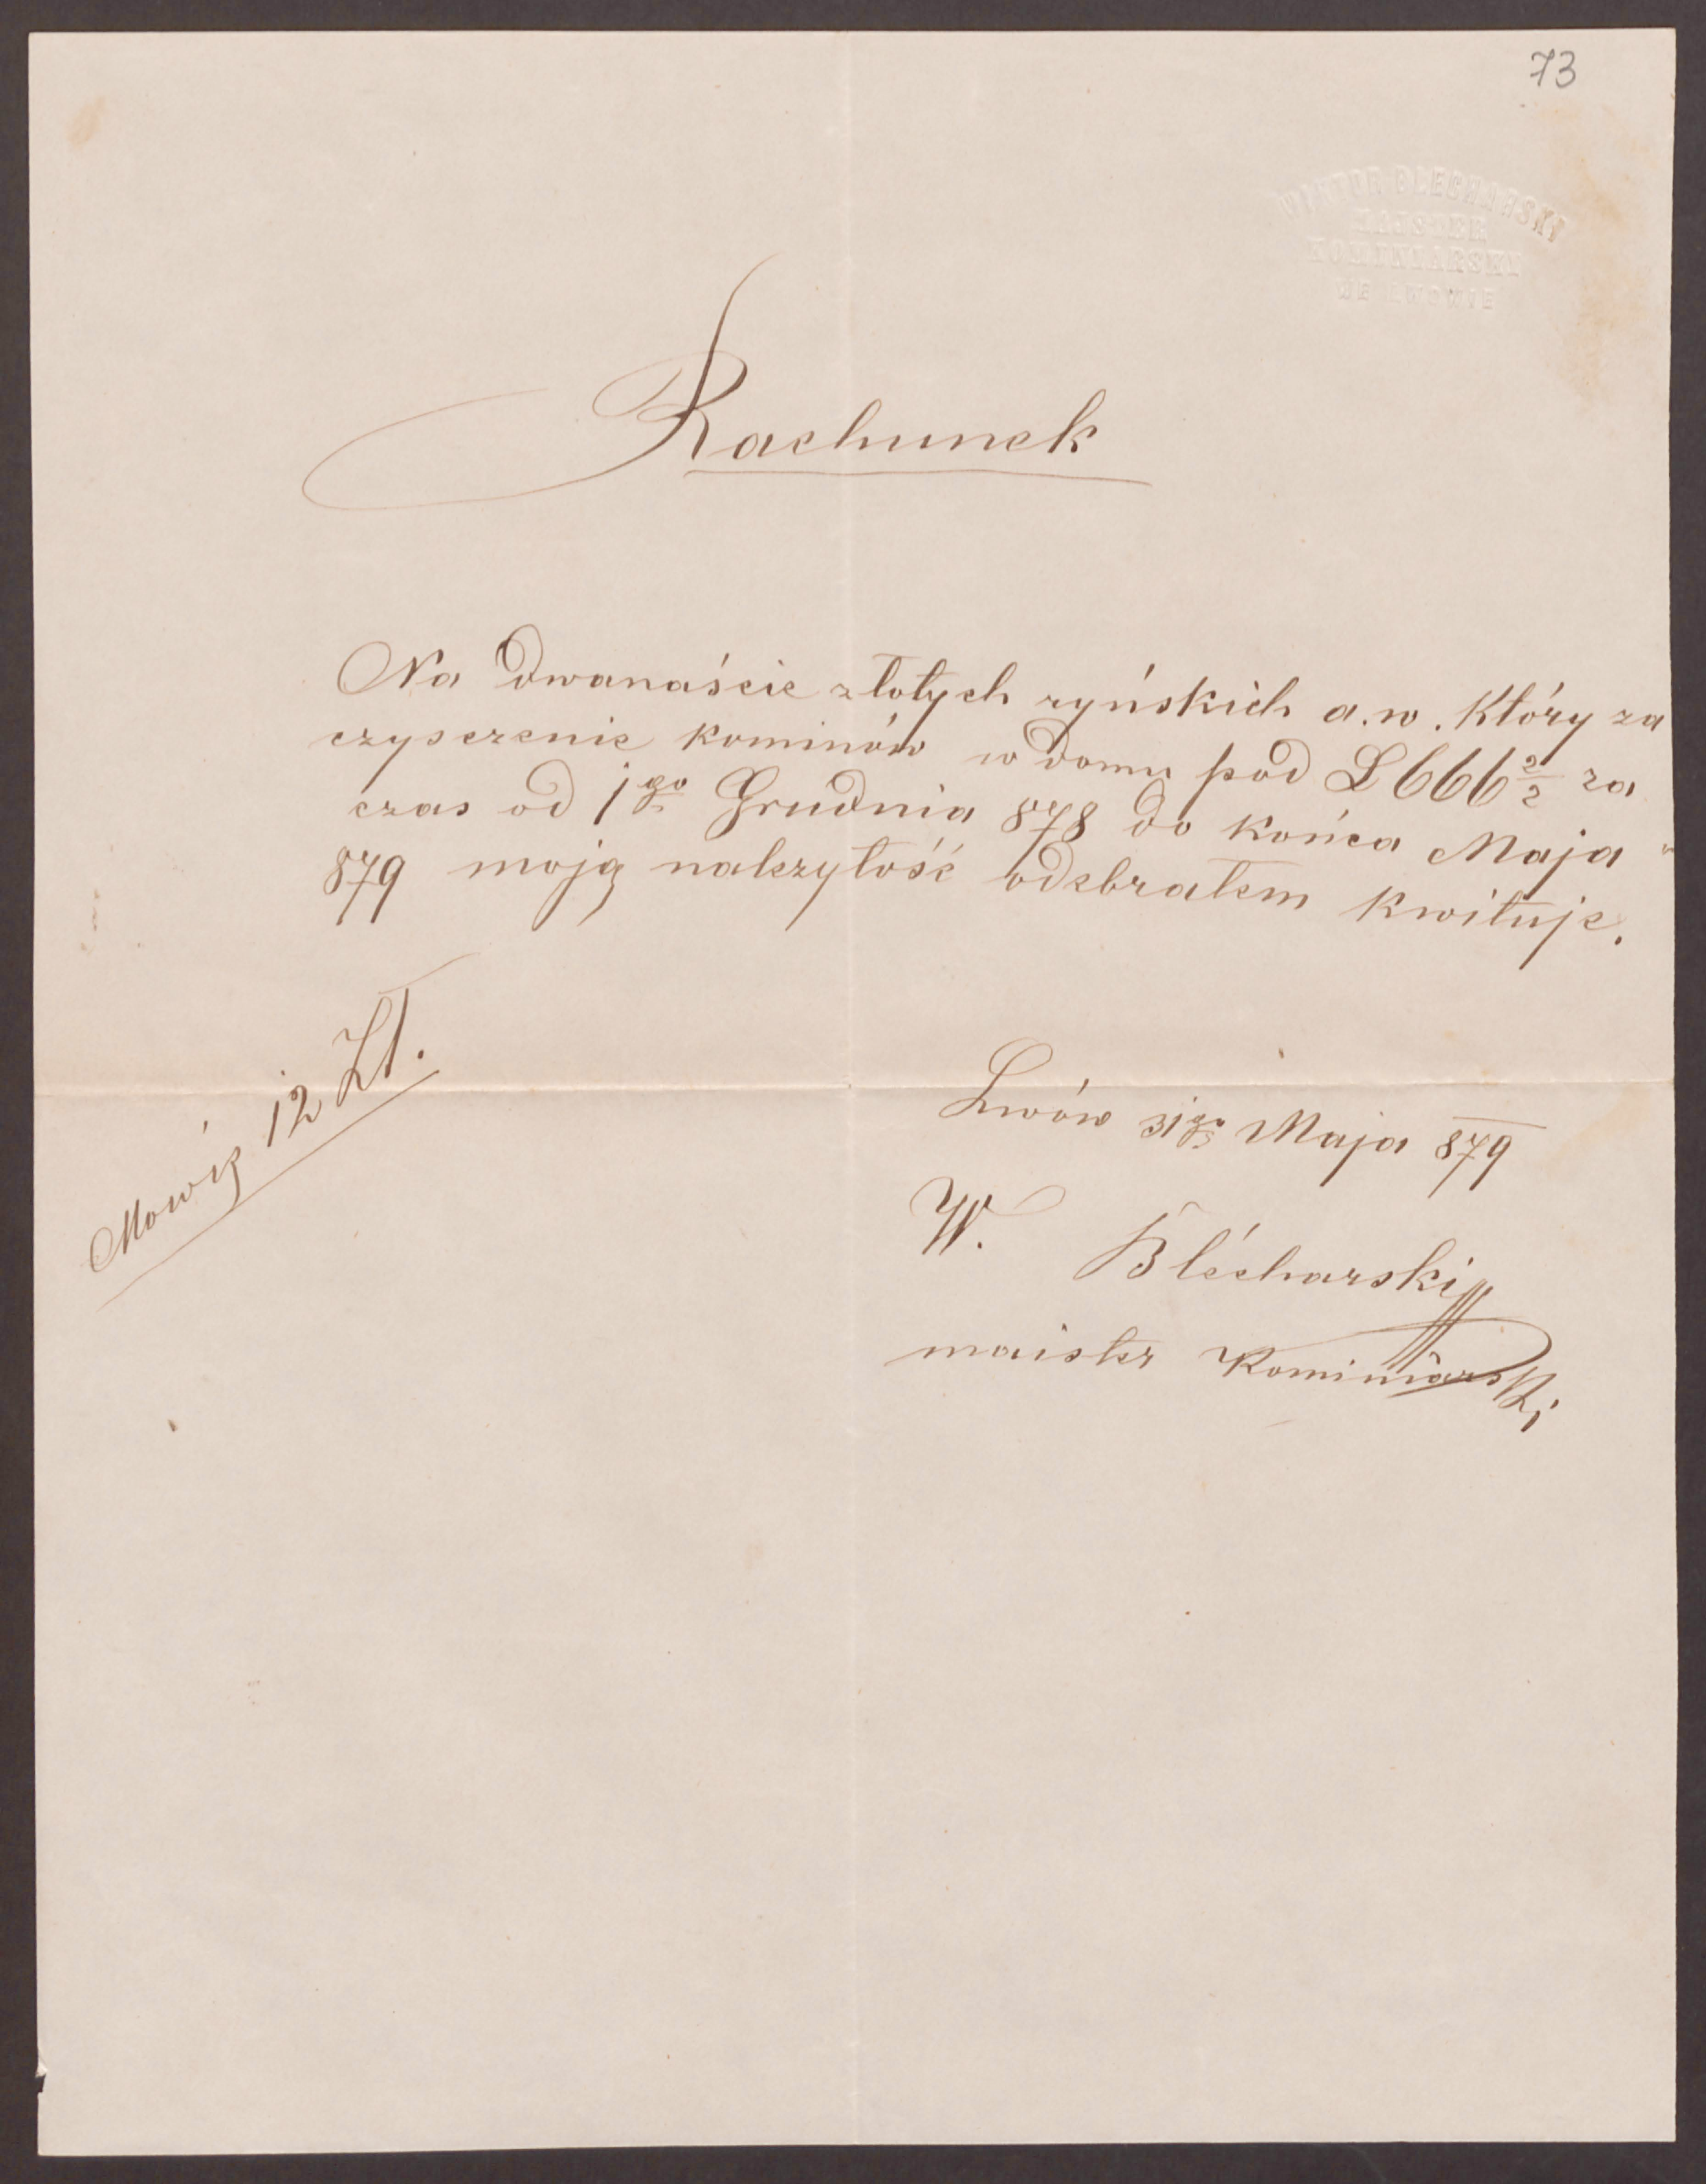 73
WIKTOR BLECHARSKI
MAJSTER
KOMINIARSKI
WE LWOWIE
Rachunek
Na dwanaście złotych ryńskich a.w. który za
czysczenie kominów w domu pod L 666 2/2 za
czas od 1go Grudnia 878 do końca Maja
879 moją należytość odebrałem kwituje.
Mowię 12 Zł.
Lwów 31go Maja 879
W. Blécharski
maister Kominiarski